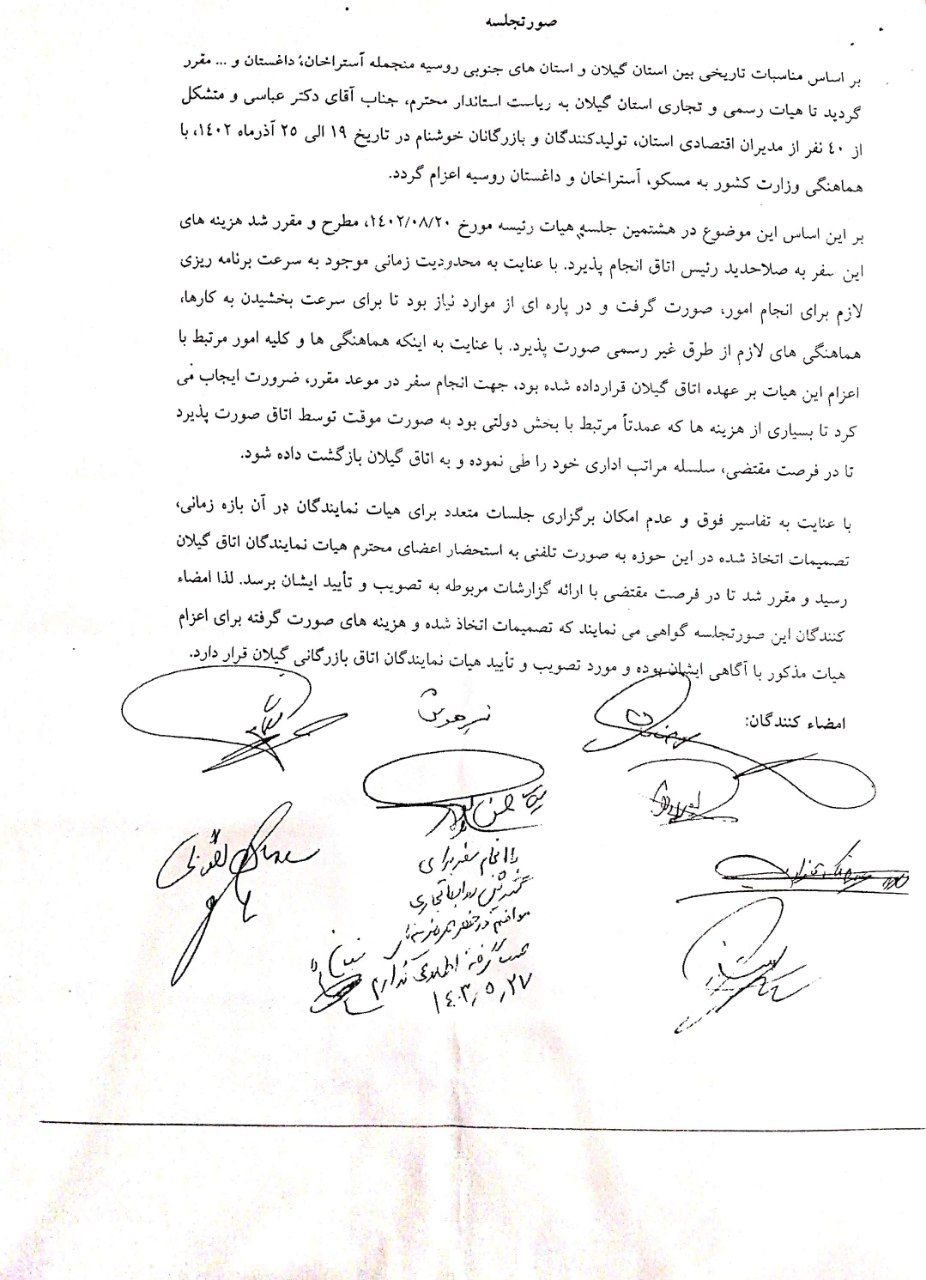 صورتجلسه
بر اساس مناسبات تاریخی بین استان گیلان و استان های جنوبی روسیه منجمله آستراخان، داغستان و ... مقرر
گردید تا هیات رسمی و تجاری استان گیلان به ریاست استاندار محترم، جناب آقای دکتر عباسی و متشکل
از ۴۰ نفر از مدیران اقتصادی استان، تولیدکنندگان و بازرگانان خوشنام در تاریخ ۱۹ الی ۲۵ آذرماه ۱۴۰۲، با
هماهنگی وزارت کشور به مسکو، آستراخان و داغستان روسیه اعزام گردد.
بر این اساس این موضوع در هشتمین جلسه هیات رئیسه مورخ ۱۴۰۲/۰۸/۲۰، مطرح و مقرر شد هزینه های
این سفر به صلاحدید رئیس اتاق انجام پذیرد. با عنایت به محدودیت زمانی موجود به سرعت برنامه ریزی
لازم برای انجام امور، صورت گرفت و در پاره ای از موارد نیاز بود تا برای سرعت بخشیدن به کارها،
هماهنگی های لازم از طرق غیر رسمی صورت پذیرد. با عنایت به اینکه هماهنگی ها و کلیه امور مرتبط با
اعزام این هیات بر عهده اتاق گیلان قرارداده شده بود، جهت انجام سفر در موعد مقرر، ضرورت ایجاب می
کرد تا بسیاری از هزینه ها که عمدتاً مرتبط با بخش دولتی بود به صورت موقت توسط اتاق صورت پذیرد
تا در فرصت مقتضی، سلسله مراتب اداری خود را طی نموده و به اتاق گیلان بازگشت داده شود.
با عنایت به تفاسیر فوق و عدم امکان برگزاری جلسات متعدد برای هیات نمایندگان در آن بازه زمانی،
تصمیمات اتخاذ شده در این حوزه به صورت تلفنی به استحضار اعضای محترم هیات نمایندگان اتاق گیلان
رسید و مقرر شد تا در فرصت مقتضی با ارائه گزارشات مربوطه به تصویب و تأیید ایشان برسد. لذا امضاء
کنندگان این صورتجلسه گواهی می نمایند که تصمیمات اتخاذ شده و هزینه های صورت گرفته برای اعزام
هیات مذکور با آگاهی ایشان بوده و مورد تصویب و تأیید هیات نمایندگان اتاق بازرگانی گیلان قرار دارد.
امضاء کنندگان:
با انجام سفر برای
گسترش روابط تجاری
موافقم
اطلاعی ندارم
۱۴۰۳٫۵٫۲۷